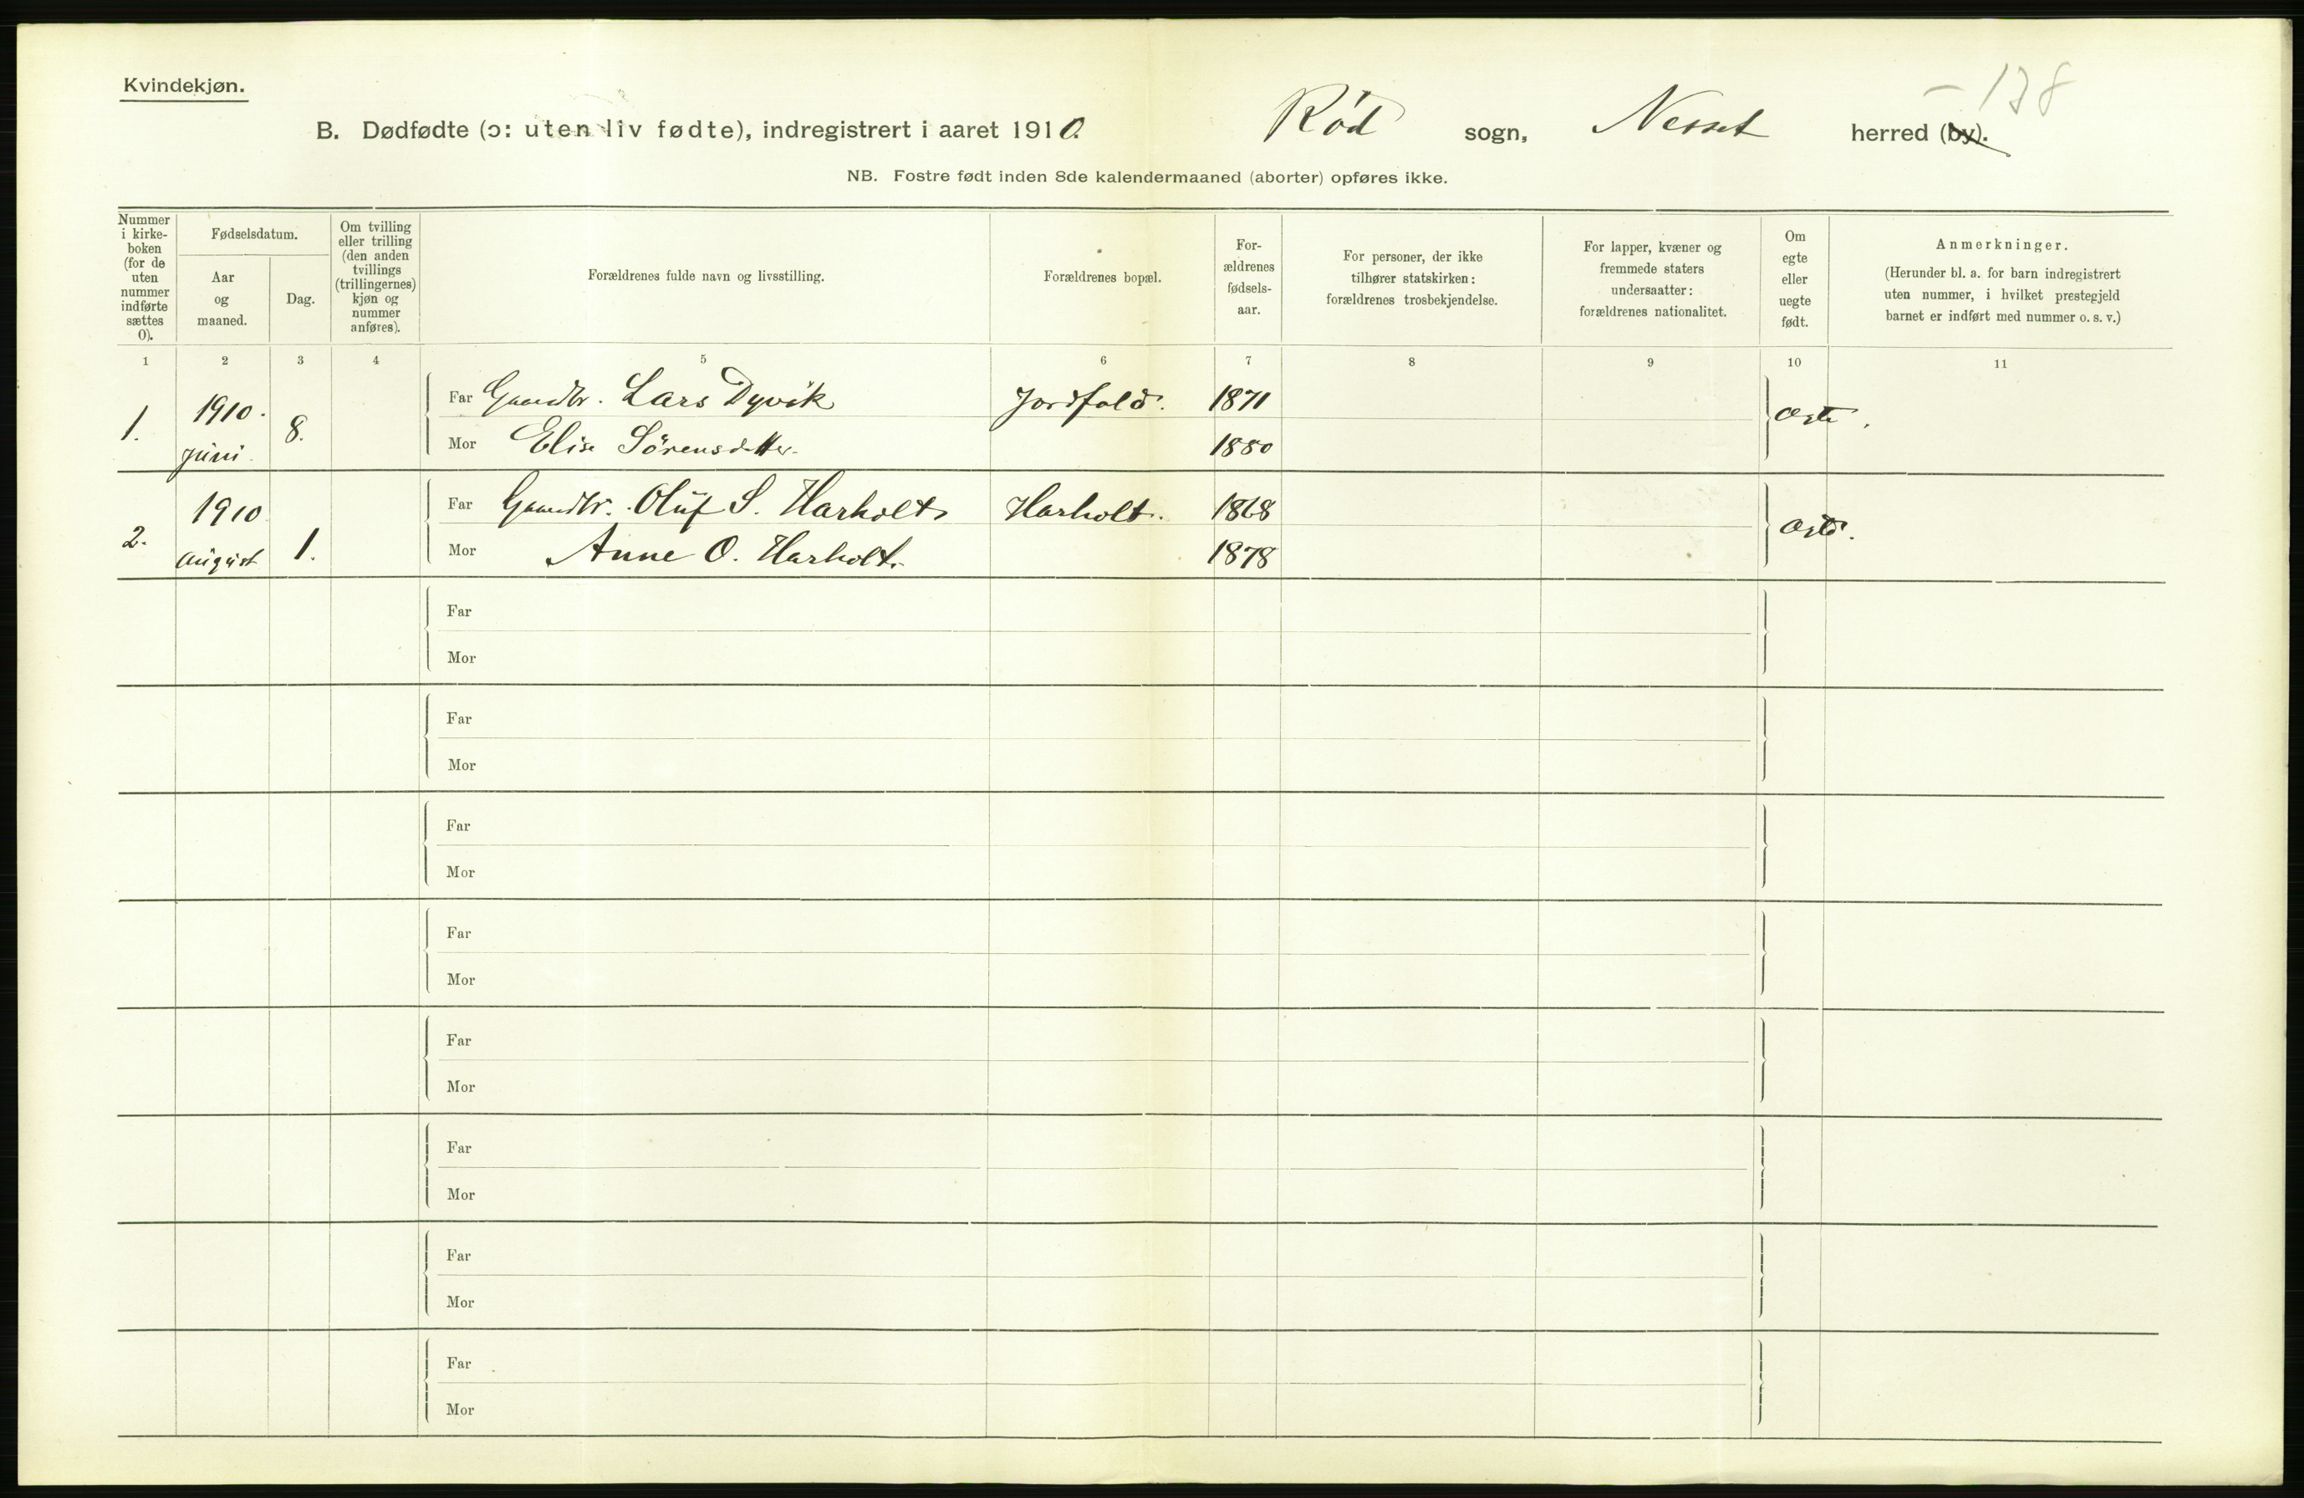 Kvindekjøn.
- 138
B. Dødfødte (ɔ: uten liv fødte), indregistrert i aaret 1910. Rød sogn, Nesset herred (by).
NB. Fostre født inden 8de kalendermaaned (aborter) opføres ikke.
Nummer i kirke-boken (for de uten nummer indførte sættes 0).
Fødselsdatum.
Aar og maaned.
Dag.
Om tvilling eller trilling (den anden tvillings (trillingernes) kjøn og nummer anføres).
Forældrenes fulde navn og livsstilling.
Forældrenes bopæl.
For-ældrenes fødsels-aar.
For personer, der ikke tilhører statskirken: forældrenes trosbekjendelse.
For lapper, kvæner og fremmede staters undersaatter: forældrenes nationalitet.
Om egte eller uegte født.
Anmerkninger.
(Herunder bl. a. for barn indregistrert uten nummer, i hvilket prestegjeld barnet er indført med nummer o. s. v.)
1 2 3 4 5 6 7 8 9 10 11
1. 1910. juni. 8. Far Gaardbr. Lars Dyvik Jordfald. 1871 Ogte.
Mor Elise Sörensdatter. 1880
2. 1910 august 1. Far Gaardbr. Oluf S. Harholt Harholt. 1868 Ogte.
Mor Anne O. Harholt. 1878
Far
Mor
Far
Mor
Far
Mor
Far
Mor
Far
Mor
Far
Mor
Far
Mor
Far
Mor